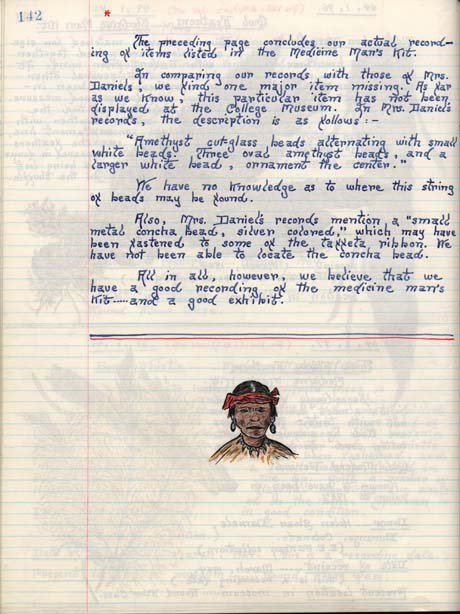 142
*
The preceding page concludes our actual record-
ing of items listed in the Medicine Man's Kit.
In comparing our records with those of Mrs.
Daniels, we find one major item missing. As far
as we know, this particular item has not been
displayed at the College Museum. In Mrs. Daniel's
records, the description is as follows:-
"Amethyst cut-glass beads alternating with small
white beads. Three oval amethyst beads, and a
larger white bead, ornament the center."
We have no knowledge as to where this string
of beads may be found.
Also, Mrs. Daniel's records mention a "small
metal concha bead, silver colored," which may have
been fastened to some of the taffeta ribbon. We
have not been able to locate the concha bead.
All in all, however, we believe that we
have a good recording of the medicine man's
kit.....and a good exhibit.